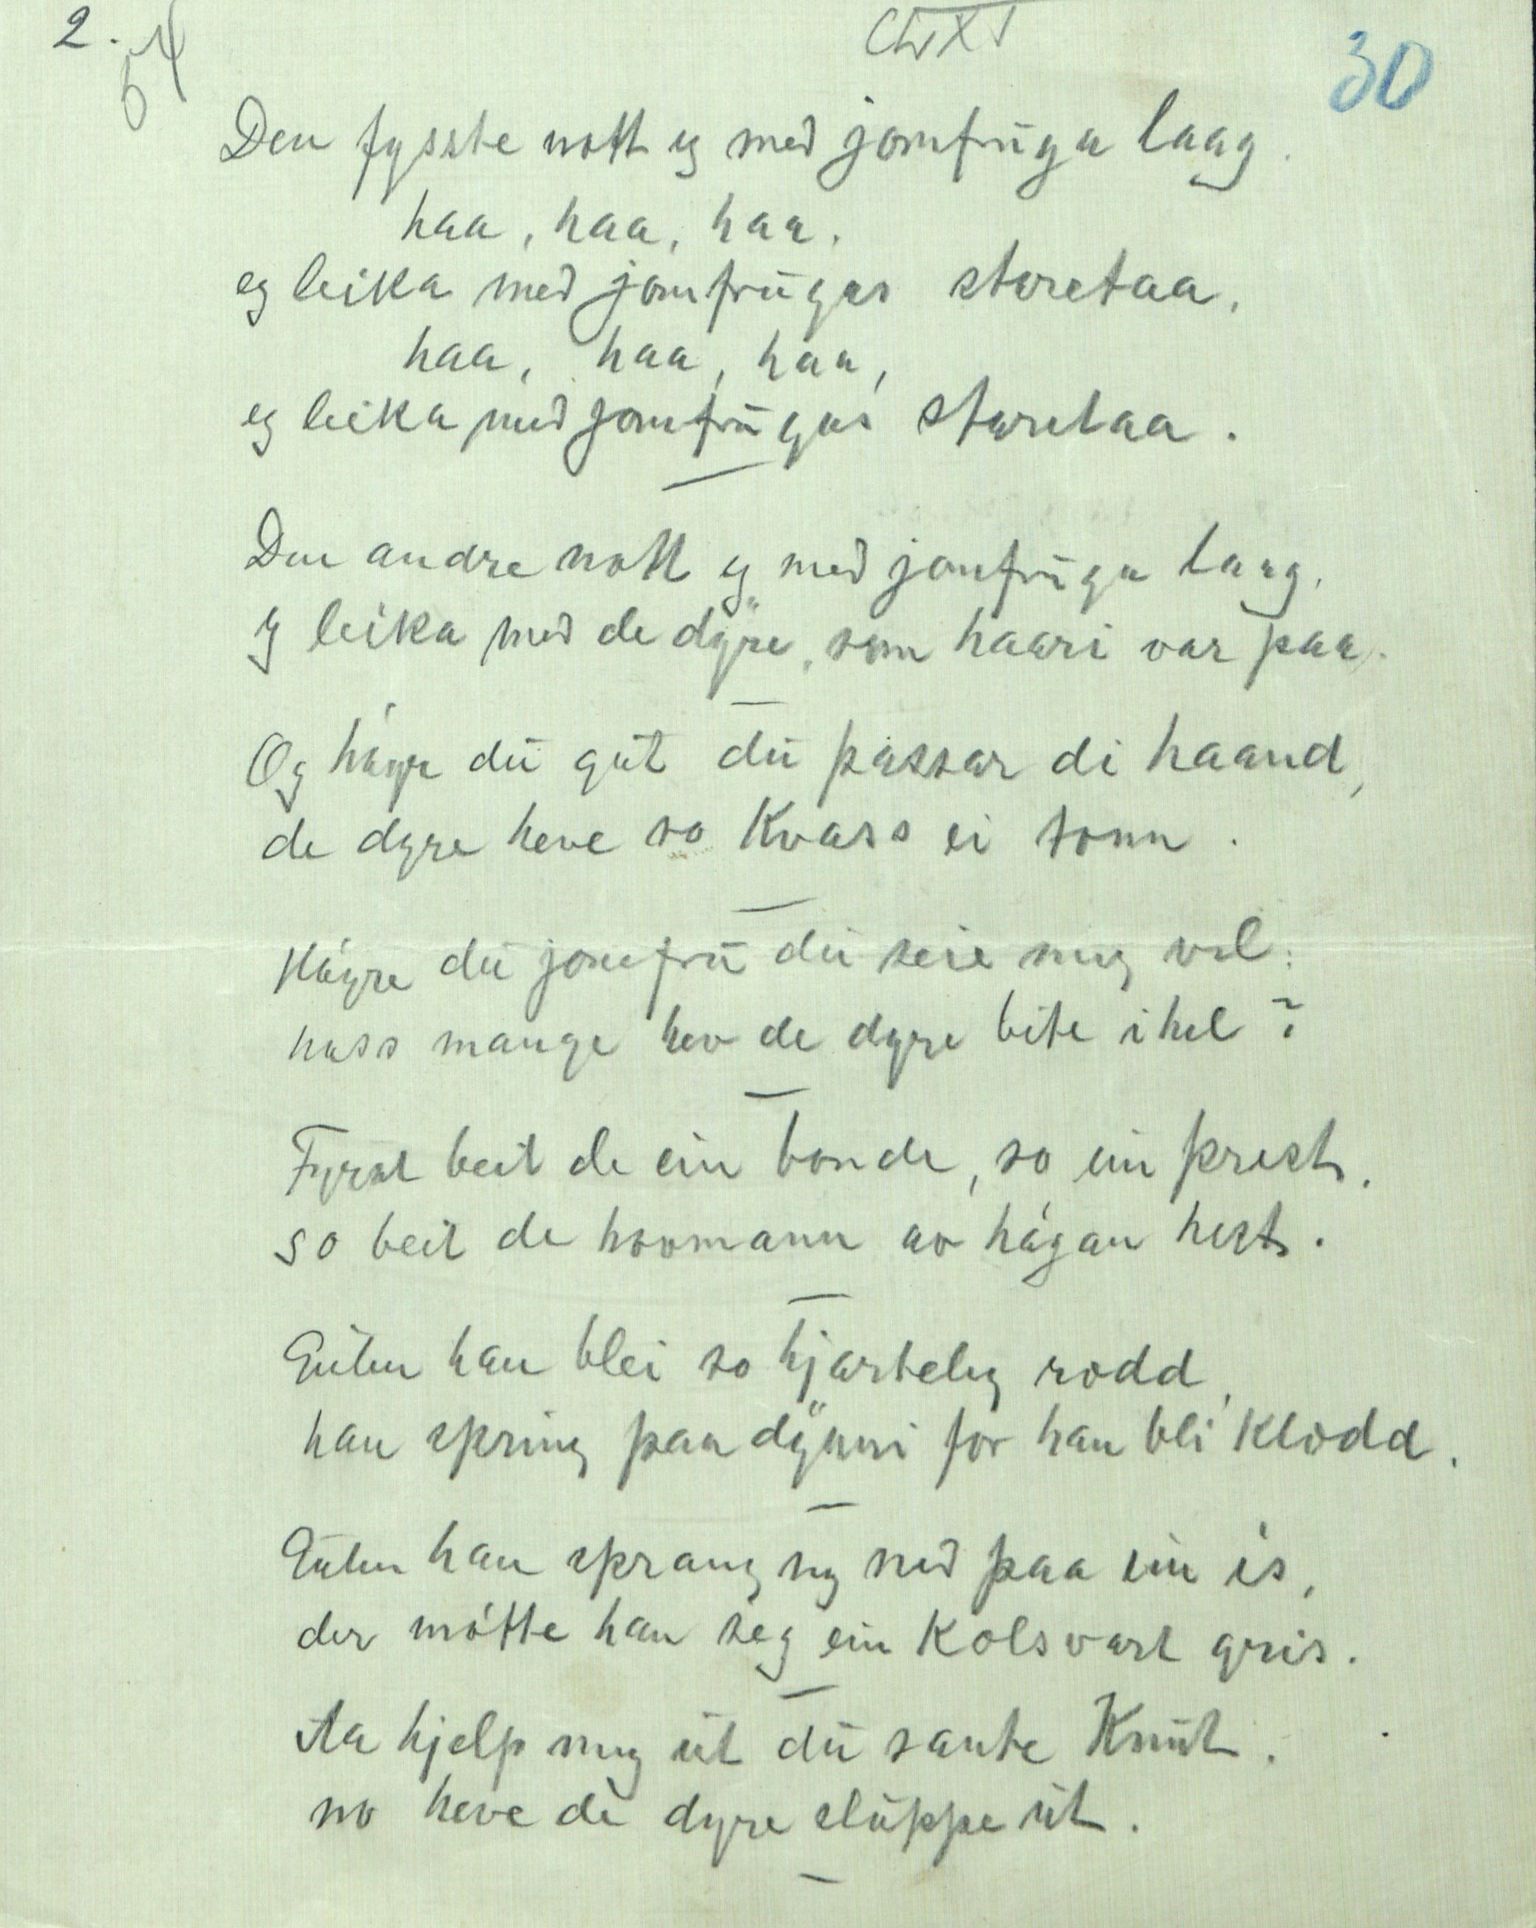 2.
54
30
Den fysste nott eg med jomfrūga laag.
haa, haa, haa.
eg leika med jomfrūgas storetaa,
haa, haa, haa,
eg leika med jomfrūgas storetaa.
Den andre nott eg med jomfrūga laag,
eg leika med de dÿre, som haari var paa.
Og høyre dū gūt dū passar di haand,
de dyre heve so kvass ei tonn.
Høyre dū jomfrū dū seie meg vel:
hoss mange hev de dyre bite ihel?
Fyrst beit de ein bonde, so ein prest,
so beit de hovmann av høgan hest.
Gūten han blei so hjarteleg rædd,
han spring paa dÿnni for han bli klædd.
Gūten han sprang seg ned paa ein is,
der møtte han seg ein kolsvart gris.
Aa hjelp meg ūt dū sante Knūt.
no heve de dyre slūppe ūt.